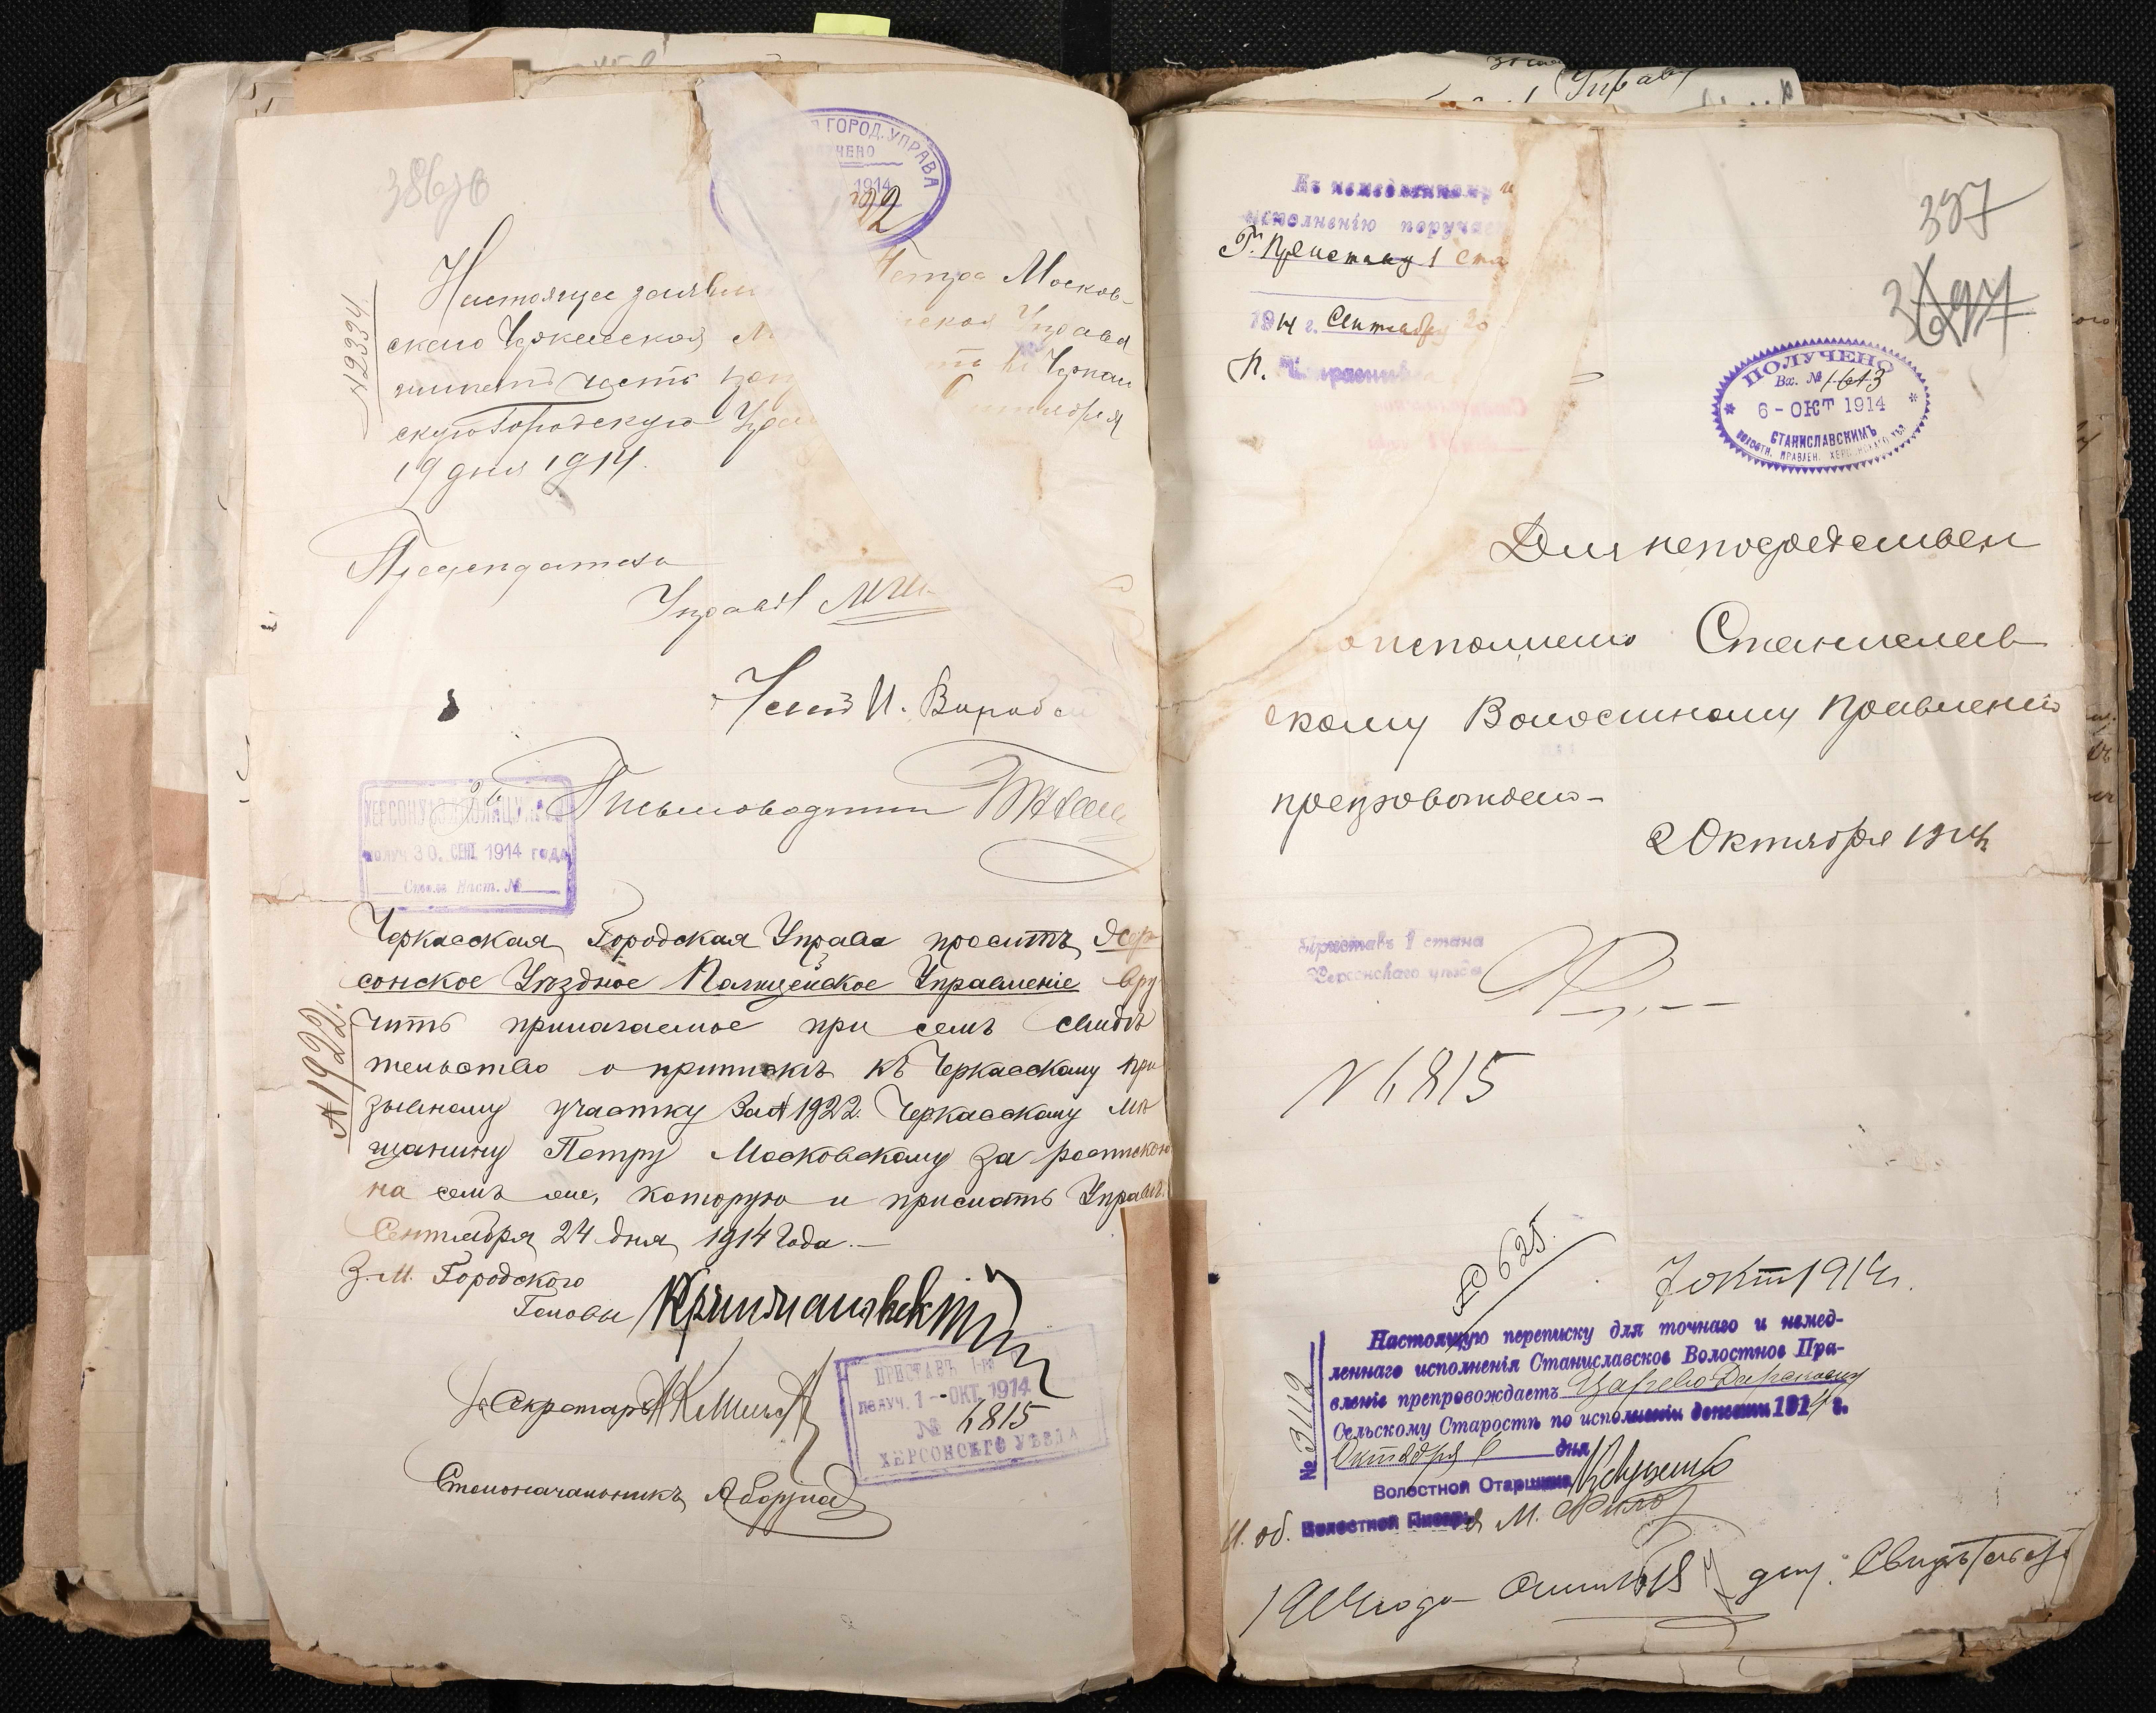 ГОРОД. УПРАВА
1914
22
386
Настоящее заявле Петра Москов-
скаго Черкасская М ская Управа
имеетъ честь в Черкас
скую Городскую Упр Сентября
19 дня 1914.
№ 2334
Председатель
Управы
Членъ И.
Письмоводитель
ХЕРСОН УѢЗД ПОЛИЦ УПР
получ. 30. СЕН 1914 года
Столъ Наст. №
Черкасская Городская Управа проситъ Хер-
сонское Уѣздное Полицейское Управленіе вру
чить прилагаемое при семъ свидѣ
тельство о припискѣ къ Черкасскому при
зывному участку за № 1922. Черкасскому мѣ
щанину Петру Московскому за роспискою
на семъ же, которую и прислать Управѣ.
Сентября 24 дня 1914 года.—
№ 1922.
З. М. Городского
Головы
Секретарь
ПРИСТАВЪ 1-го
получ. 1 - ОКТ. 1914
№ 6815
ХЕРСОНСКГО УѢЗДА
Столоначальникъ
Къ немедленному
исполненію поруча
Г. Приставу 1 ста
1914 г. Сентября 30
П.
397
ПОЛУЧЕНО
Вх. № 1613
6 - ОКТ 1914
СТАНИСЛАВСКИМЪ
ВОЛОСТН. ПРАВЛЕН. ХЕРСОНСКАГО УѢЗ.
Для непосредствен
исполнению Станислав
скому Волостному Правлению
препровождаю-
2 Октября 1914
Приставъ 1 стана
Херсонскаго уѣзда
№ 6815
625.
7 окт 1914 г.
Настоящую переписку для точнаго и немед-
леннаго исполненія Станиславское Волостное Пра-
вленіе препровождаетъ
Сельскому Старостѣ по исполненіи донести 1914 г.
Октября 6 дня
№ 3112
Волостной Старшина
И. об. Волостной Писарь М.
1914 года Октября